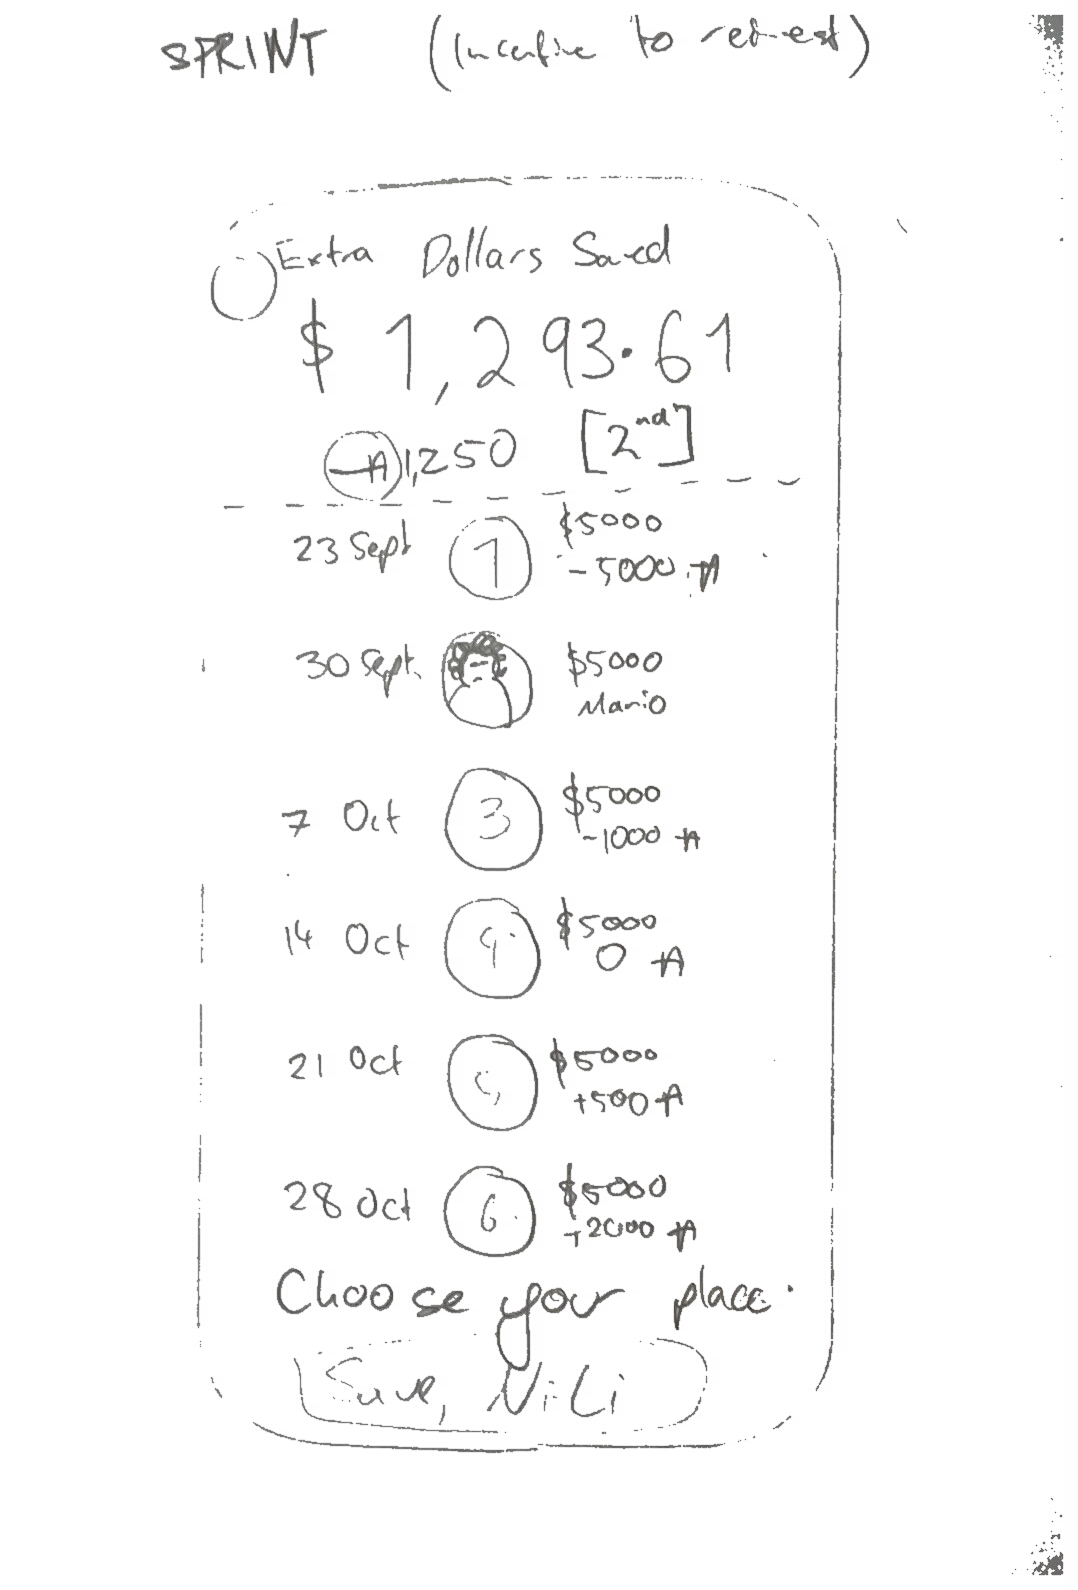 SPRINT (Incentive to
Extra Dollars Saved
$ 1,293.61
1,250 [2nd]
23 Sept 1 $5000
- 5000 A
30 Sept. $5000
Mario
7 Oct 3 $5000
-1000 A
14 Oct 4 $5000
0 A
21 Oct 5 $5000
+500 A
28 Oct 6 $5000
+2000 A
Choose your place.
NiLi